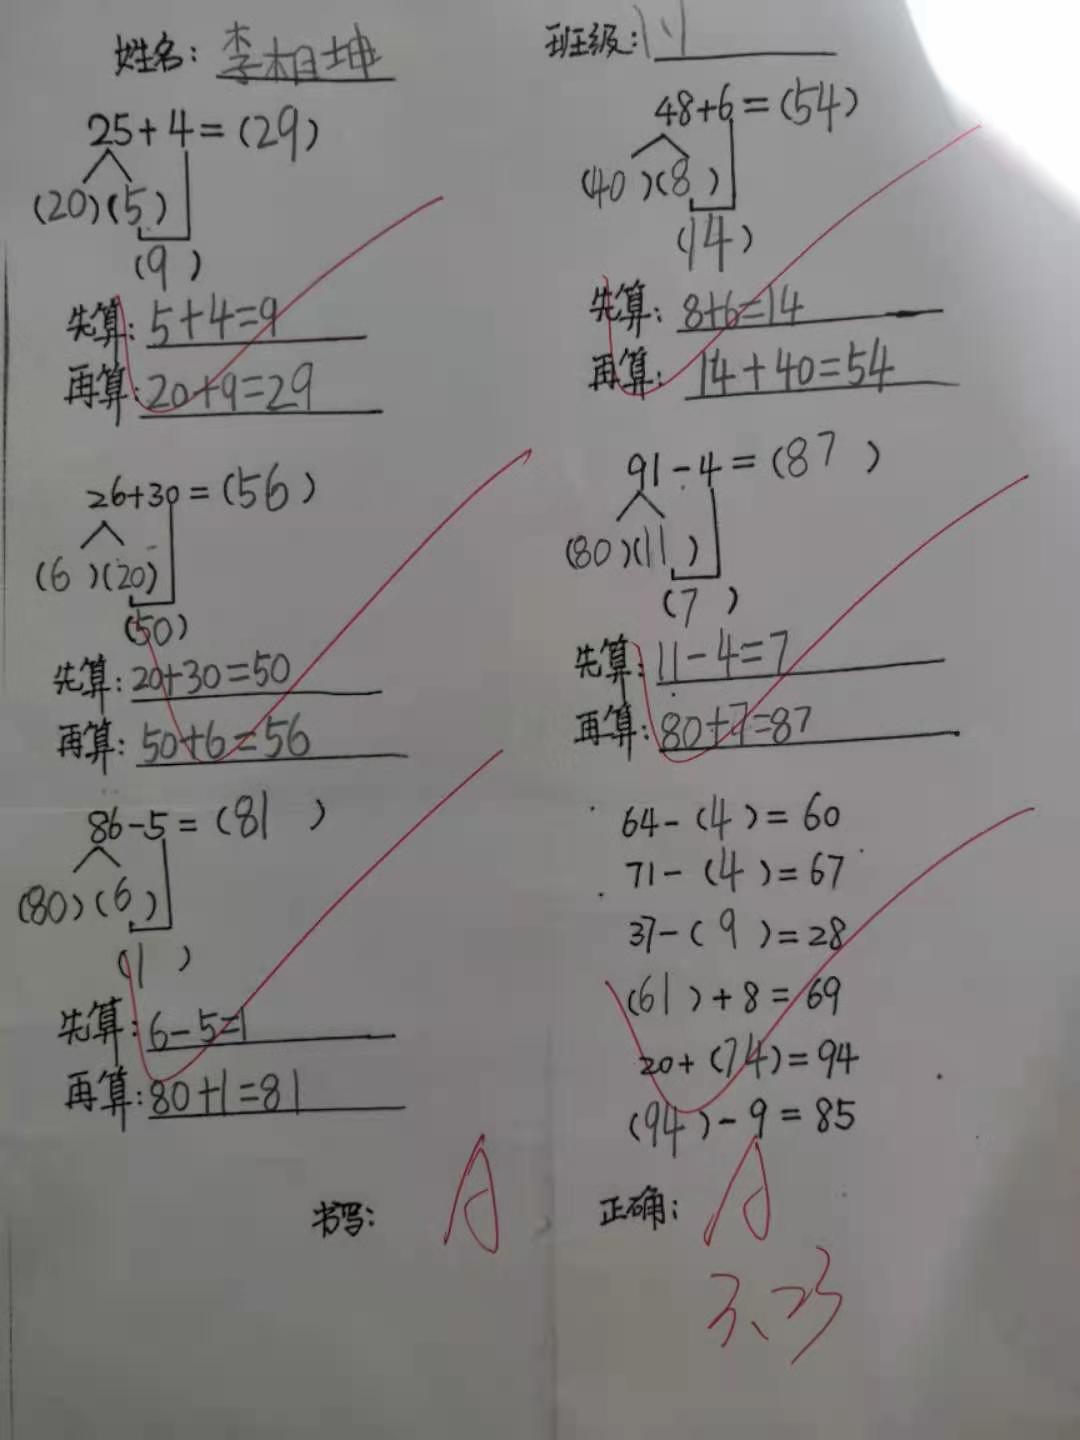 姓名：李相坤
25+4=(29)
(20)(5)
(9)
先算：5+4=9
再算：20+9=29
26+30=(56)
(6)(20)
(50)
先算：20+30=50
再算：50+6=56
86-5=(81)
(80)(6)
(1)
先算：6-5=1
再算：80+1=81
书写：A
班级：
48+6=(54)
(40)(8)
(14)
先算：8+6=14
再算：14+40=54
91-4=(87)
(80)(11)
(7)
先算：11-4=7
再算：80+7=87
64-(4)=60
71-(4)=67
37-(9)=28
(61)+8=69
20+(74)=94
(94)-9=85
正确：A
3、23